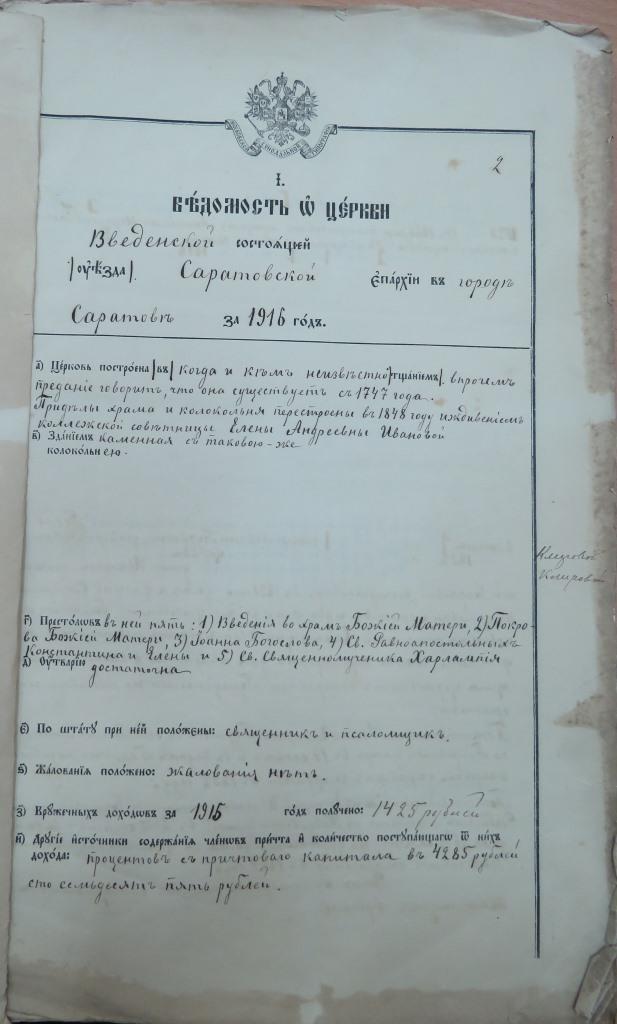 2
I.
ВѢ́ДОМОСТЬ Ѡ҆ ЦЕ́РКВИ
Введенской состоѧ́щей
/оу҆ѣ́зда/. Саратовской Е҆па́рхїи въ городѣ
Саратовѣ за 1916 го́дъ.
а҃) Це́рковь постро́ена /въ/ когда и кѣмъ неизвѣстно /тща́нїемъ/. впрочемъ
преданіе говоритъ, что она существуетъ съ 1747 года.
Придѣлы храма и колокольня перестроены въ 1848 году иждивеніемъ
коллежской совѣтницы Елены Андреевны Ивановой
в҃) Зда́нїемъ каменная съ таковою-же
колоко́льнею.
г҃) Престо́лѡвъ въ ней пять: 1) Введенія во храмъ Божіей Матери, 2) Покро-
ва Божіей Матери, 3) Іоанна Богослова, 4) Св. Равноапостольныхъ
Константина и Елены и 5) Св. Священномученика Харлампія
д҃) Оу҆́тварїю достаточна
є҃) По шта́тꙋ при не́й поло́жены: священникъ и псаломщикъ.
ѕ҃) Жа́лованїѧ поло́жено: жалованія нѣтъ.
з҃) Крꙋжечныхъ дохо́дѡвъ за 1915 го́дъ полꙋчено: 1425 рублей
и҃) Дрꙋгі́е и҆сто́чники содержа́нїѧ чле́нѡвъ при́чта и҆ коли́чество постꙋпа́ющагѡ ѿ ни́хъ
дохо́да: процентовъ съ причтоваго капитала въ 4285 рублей
сто семьдесятъ пять рублей.